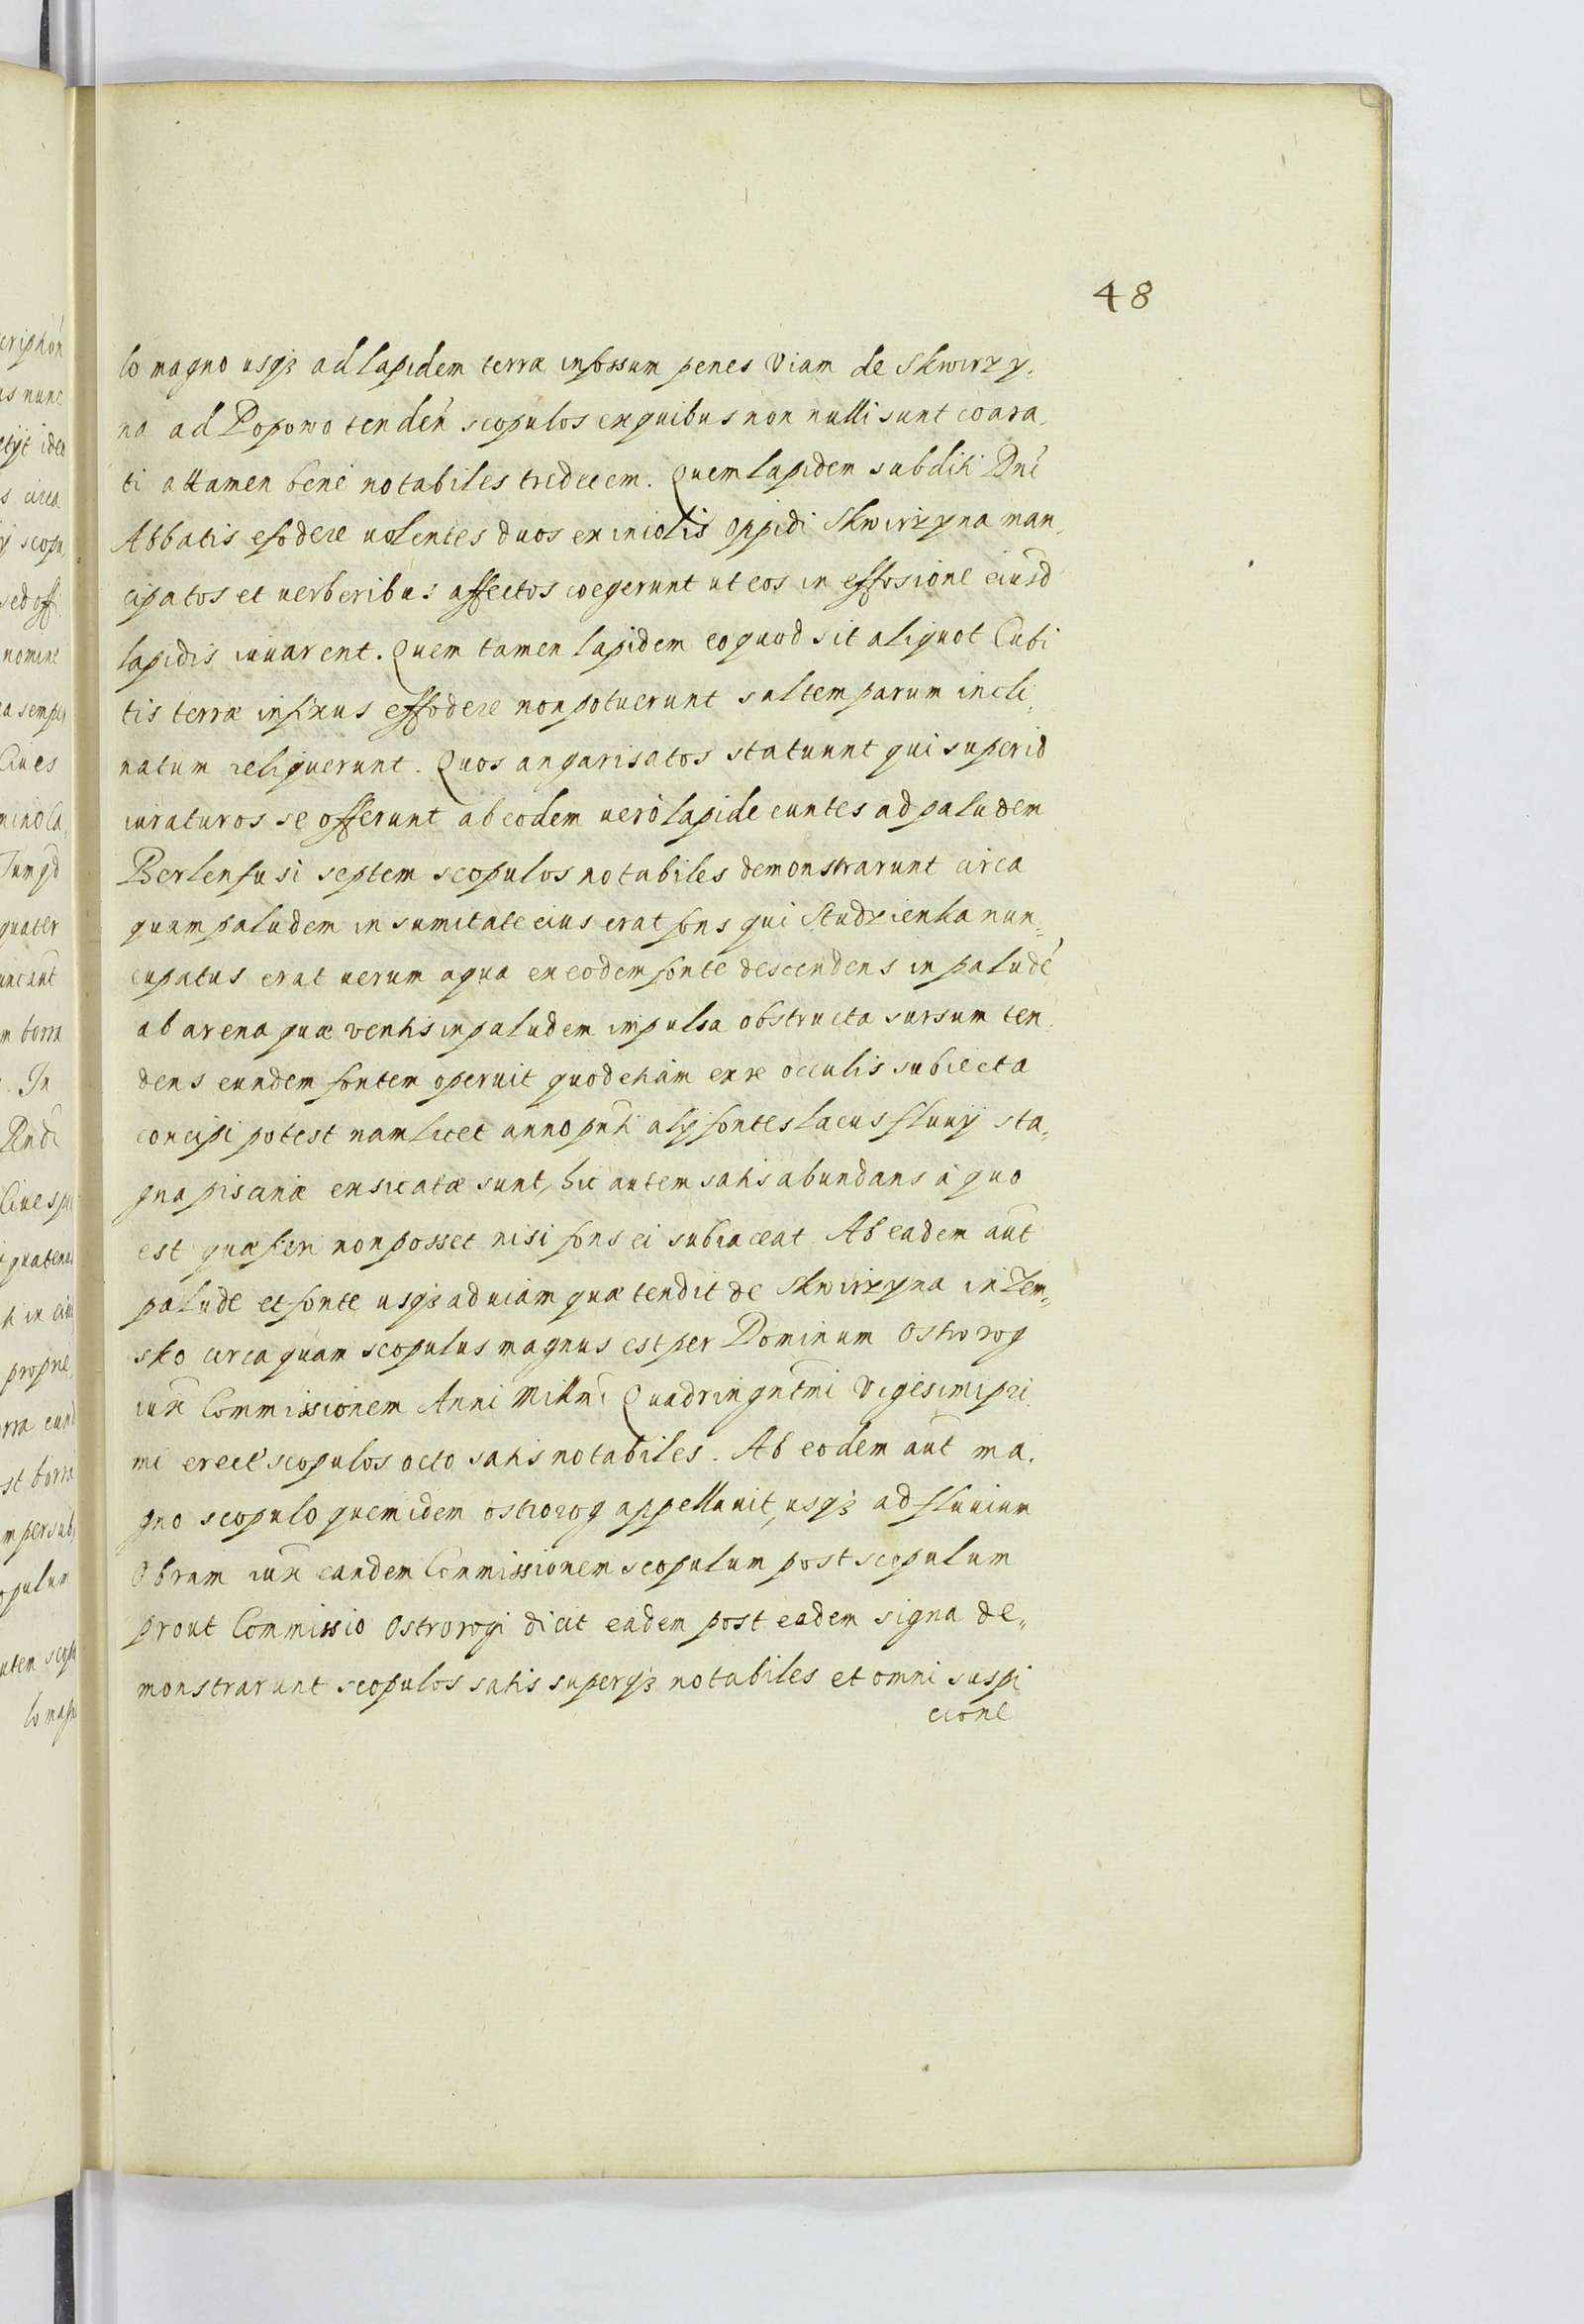 48
lo magno usq3 ad lapidem terræ infossum penes Viam de Skwirzy,
na ad Popowo tendeñ scopulos ex quibus non nulli sunt coara,
ti attamen bene notabiles tredecem. Quem lapidem subditi Dñi
Abbatis efodere uolentes duos ex incolis oppidi Skwirzyna man,
cipatos et uerberibus affectos coegerunt ut eos in effosione eiusd
lapidis iuuarent. Quem tamen lapidem eo quod sit aliquot Cubi
tis terræ infixus effodere non potuerunt saltem parum incli,
natum reliquerunt. Quos angarisatos statuunt qui super id
iuraturos se offerunt ab eodem uerò lapide euntes ad paludem
Berlenfusi septem scopulos notabiles demonstrarunt circa
quam paludem in sumitate eius erat fons qui Studzienka nun,,
cupatus erat uerum aqua ex eodem fonte descendens in palude
ab arena quæ ventis in paludem impulsa obstructa sursum ten,
dens eundem fontem operuit quod etiam ex re occulis subiecta
concipi potest nam licet anno pñti alij fontes lacus fluuij sta,,
gna piscinæ exsicatæ sunt, hic autem satis abundans à quo
est quæ fieri non posset nisi fons ei subiaceat. Ab eadem aut
palude et fonte usq3 ad uiam quæ tendit de Skwirzyna in Zem,,
sko circa quam scopulus magnus est per Dominum Ostrorog
iux Commissionem Anni Millmi Quadringntmi Vigesimi pri
mi erect scopulos octo satis notabiles. Ab eodem aut ma,
gno scopulo quem idem ostrorog appellauit, usq3 ad fluuium
Obram iux eandem Commissionem scopulum post scopulum
prout Commissio Ostrorogi dicit eadem post eadem signa de,,
monstrarunt scopulos satis superq3 notabiles et omni suspi
cione
eriphón
us nunc
etijt idem
s circa
ij scopu,
sed offi
nomine
ea semper
Ciues
quater
m borra
In
Ciues
propne
opulum
lo magn